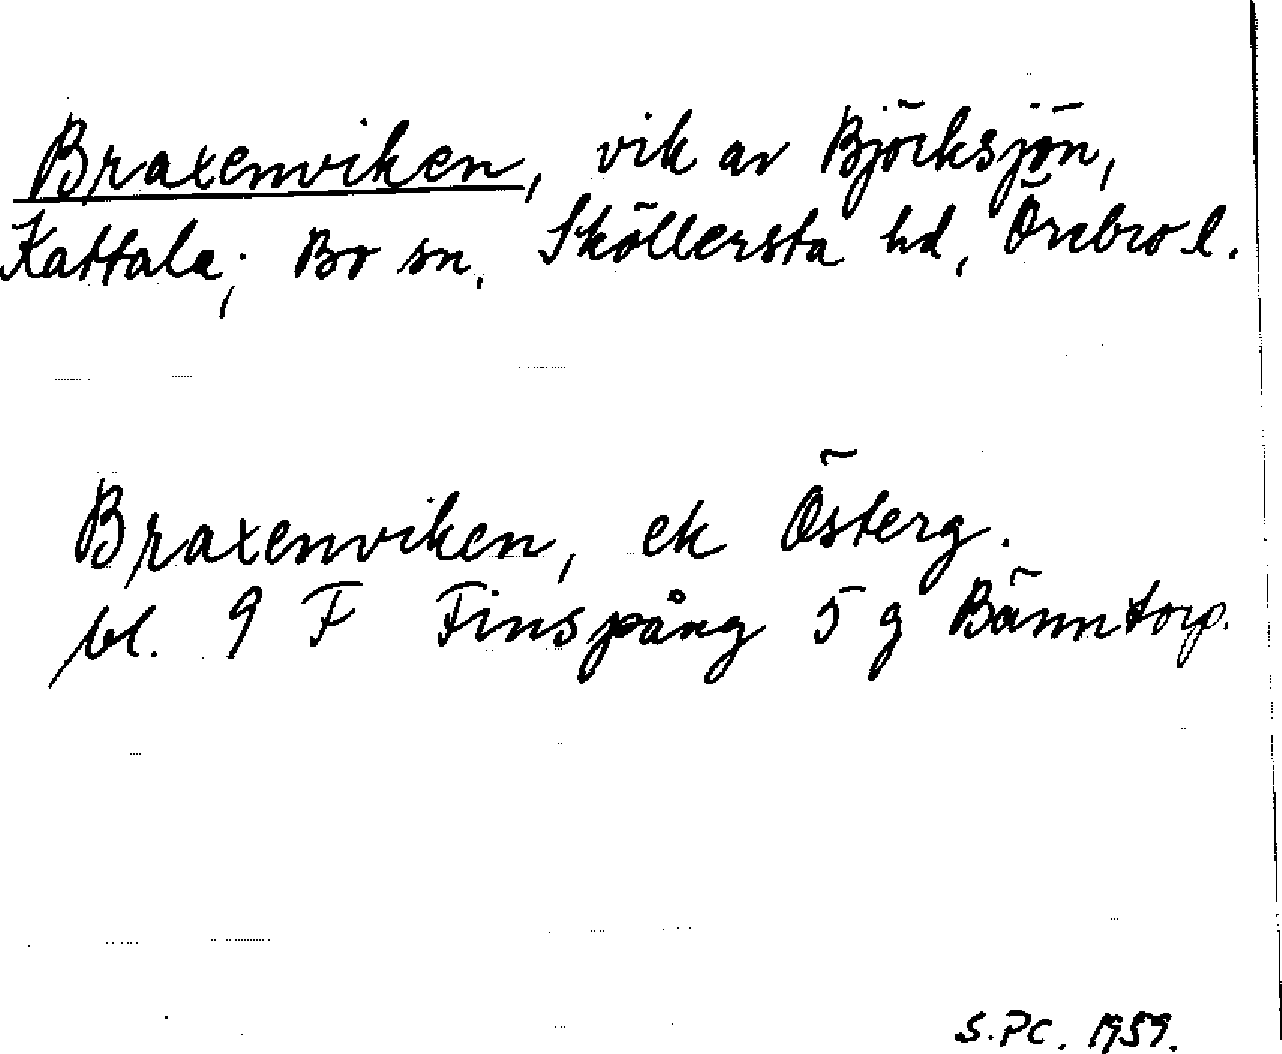 Braxenviken, vik av Björksjön,
Kattala; Bo sn. Sköllersta hd, Örebro l.
Braxenviken, ek Österg.
bl. 9 F Finspång 5 g Bänntorp.
S.PC. 1959.